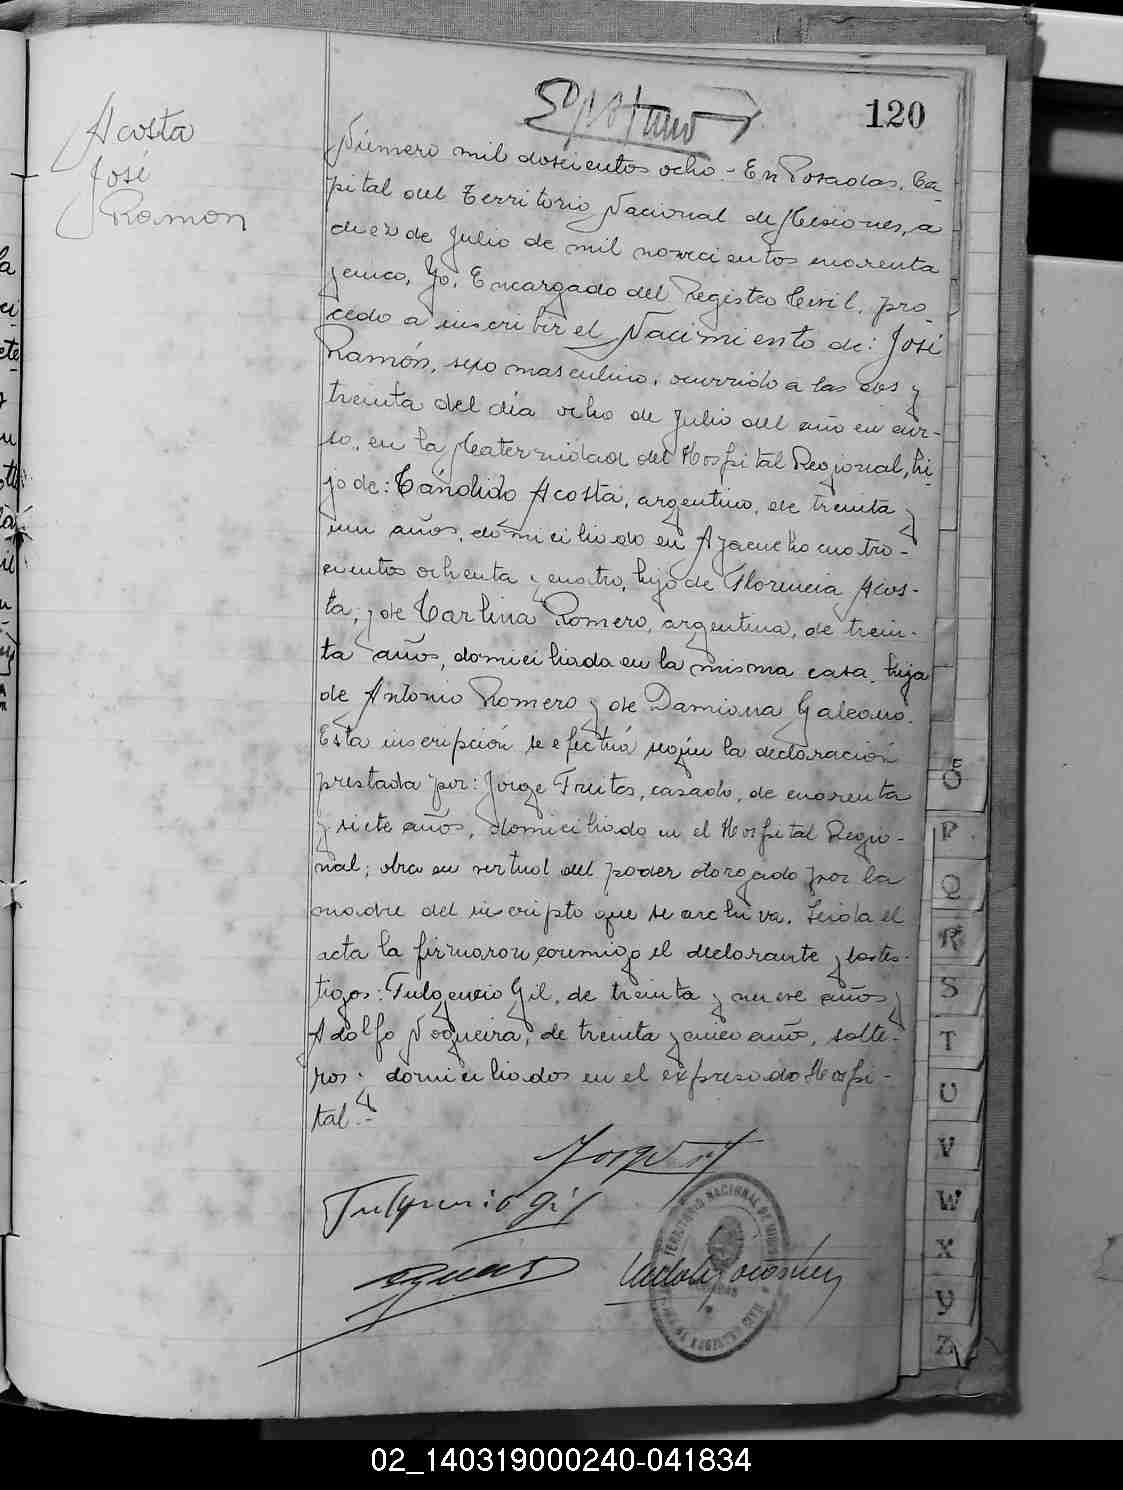 120
Acosta
José
Ramon
Número mil doscientos ocho.- En Posadas, Ca-
pital del Territorio Nacional de Misiones, a
diez de Julio de mil novecientos cuarenta
y cinco, Yo, Encargado del Registro Civil, pro-
cedo a inscribir el Nacimiento de: José
Ramón, sexo masculino, ocurrido a las dos y
treinta del día ocho de Julio del año en cur-
so, en la Maternidad del Hospital Regional, hi-
jo de: Cándido Acosta, argentino, de treinta y
un años, domiciliado en Ayacucho cuatro-
cientos ochenta y cuatro, hijo de Florencia Acos-
ta; y de Carlina Romero, argentina, de trein-
ta años, domiciliada en la misma casa, hija
de Antonio Romero y de Damiana Galeano.
Esta inscripción se efectuó según la declaración
prestada por: Jorge Frutos, casado, de cuarenta
y siete años, domiciliado en el Hospital Regio-
nal; obra en virtud del poder otorgado por la
madre del inscripto que se archiva. Leida el
acta la firmaron conmigo el declarante y los tes-
tigos: Fulgencio Gil, de treinta y nueve años y
Adolfo Nogueira, de treinta y cinco años, solte-
ros, domiciliados en el expresado Hospi-
tal.-
Fulgencio Gil
TERRITORIO NACIONAL DE MISIONES
O
P
Q
R
S
T
U
V
W
X
Y
Z
02_140319000240-041834